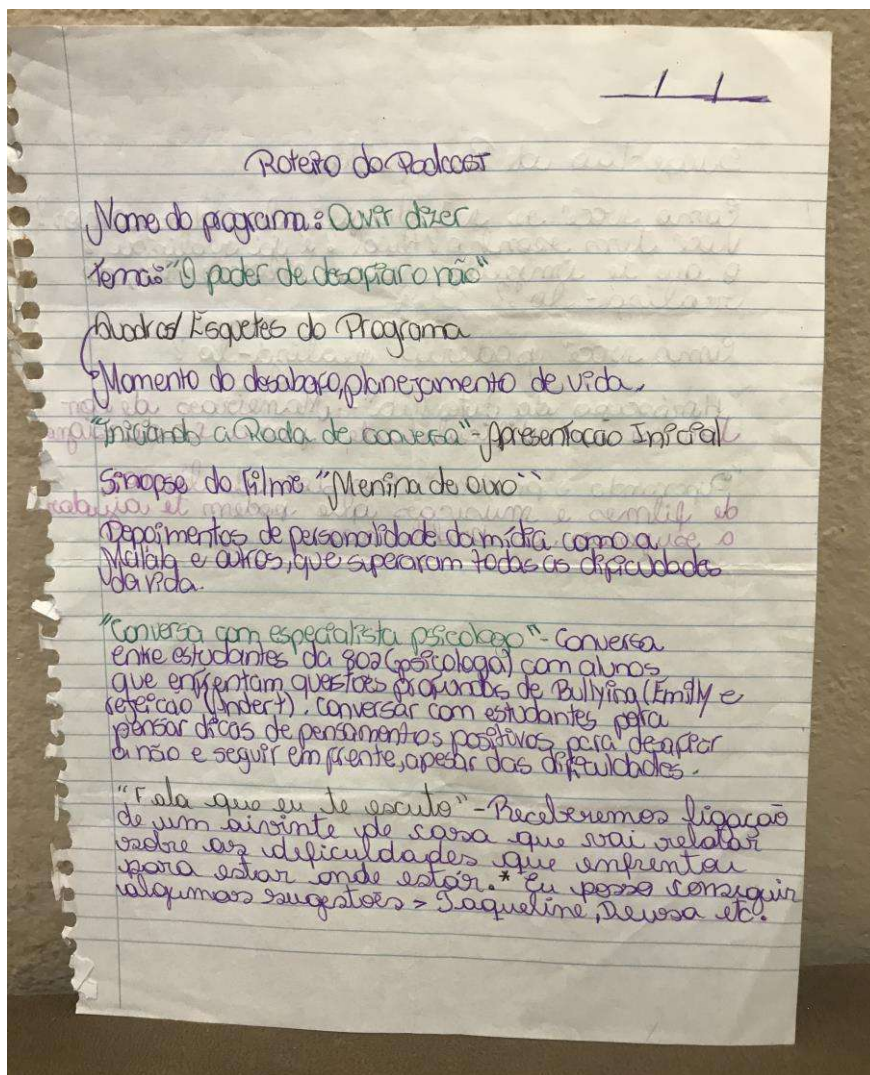 Roteiro do Podcast
Nome do programa: Ouvir dizer
Tema: "O poder de desafiar o não"
Quadros/Esquetes do Programa
Momento do desabafo, planejamento de vida.
"Iniciando a Roda de conversa" - Apresentação Inicial
Sinopse do filme "Menina de ouro"
Depoimentos de personalidade da mídia como a
Malala e outros, que superaram todas as dificuldades
da vida.
"Conversa com especialista psicologo" - Conversa
entre estudantes da 802 (psicologa) com alunos
que enfrentam questões profundas de Bullying (Emily e
rejeicao). conversar com estudantes para
pensar dicas de pensamentos positivos para desafiar
o não e seguir em frente, apesar das dificuldades.
"Fala que eu te escuto" - Receberemos ligação
de um ouvinte de casa que vai relatar
sobre as deficuldades que enfrentou
para estar onde estár. * Eu posso conseguir
algumas sugestões > Jaqueline, etc.